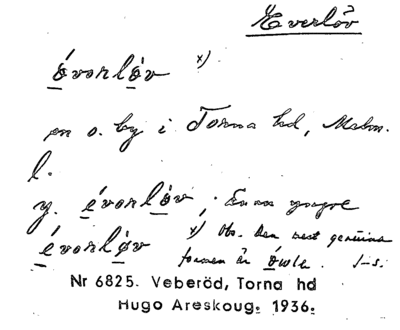 Everlöv
óvorlöv x)
sn o. by i Torna hd, Malm.
l.
y. évorlöv; ännu yngre
évorløv x) Obs. Den mest genuina
formen är
Nr 6825. Veberöd, Torna hd
Hugo Areskoug. 1936.